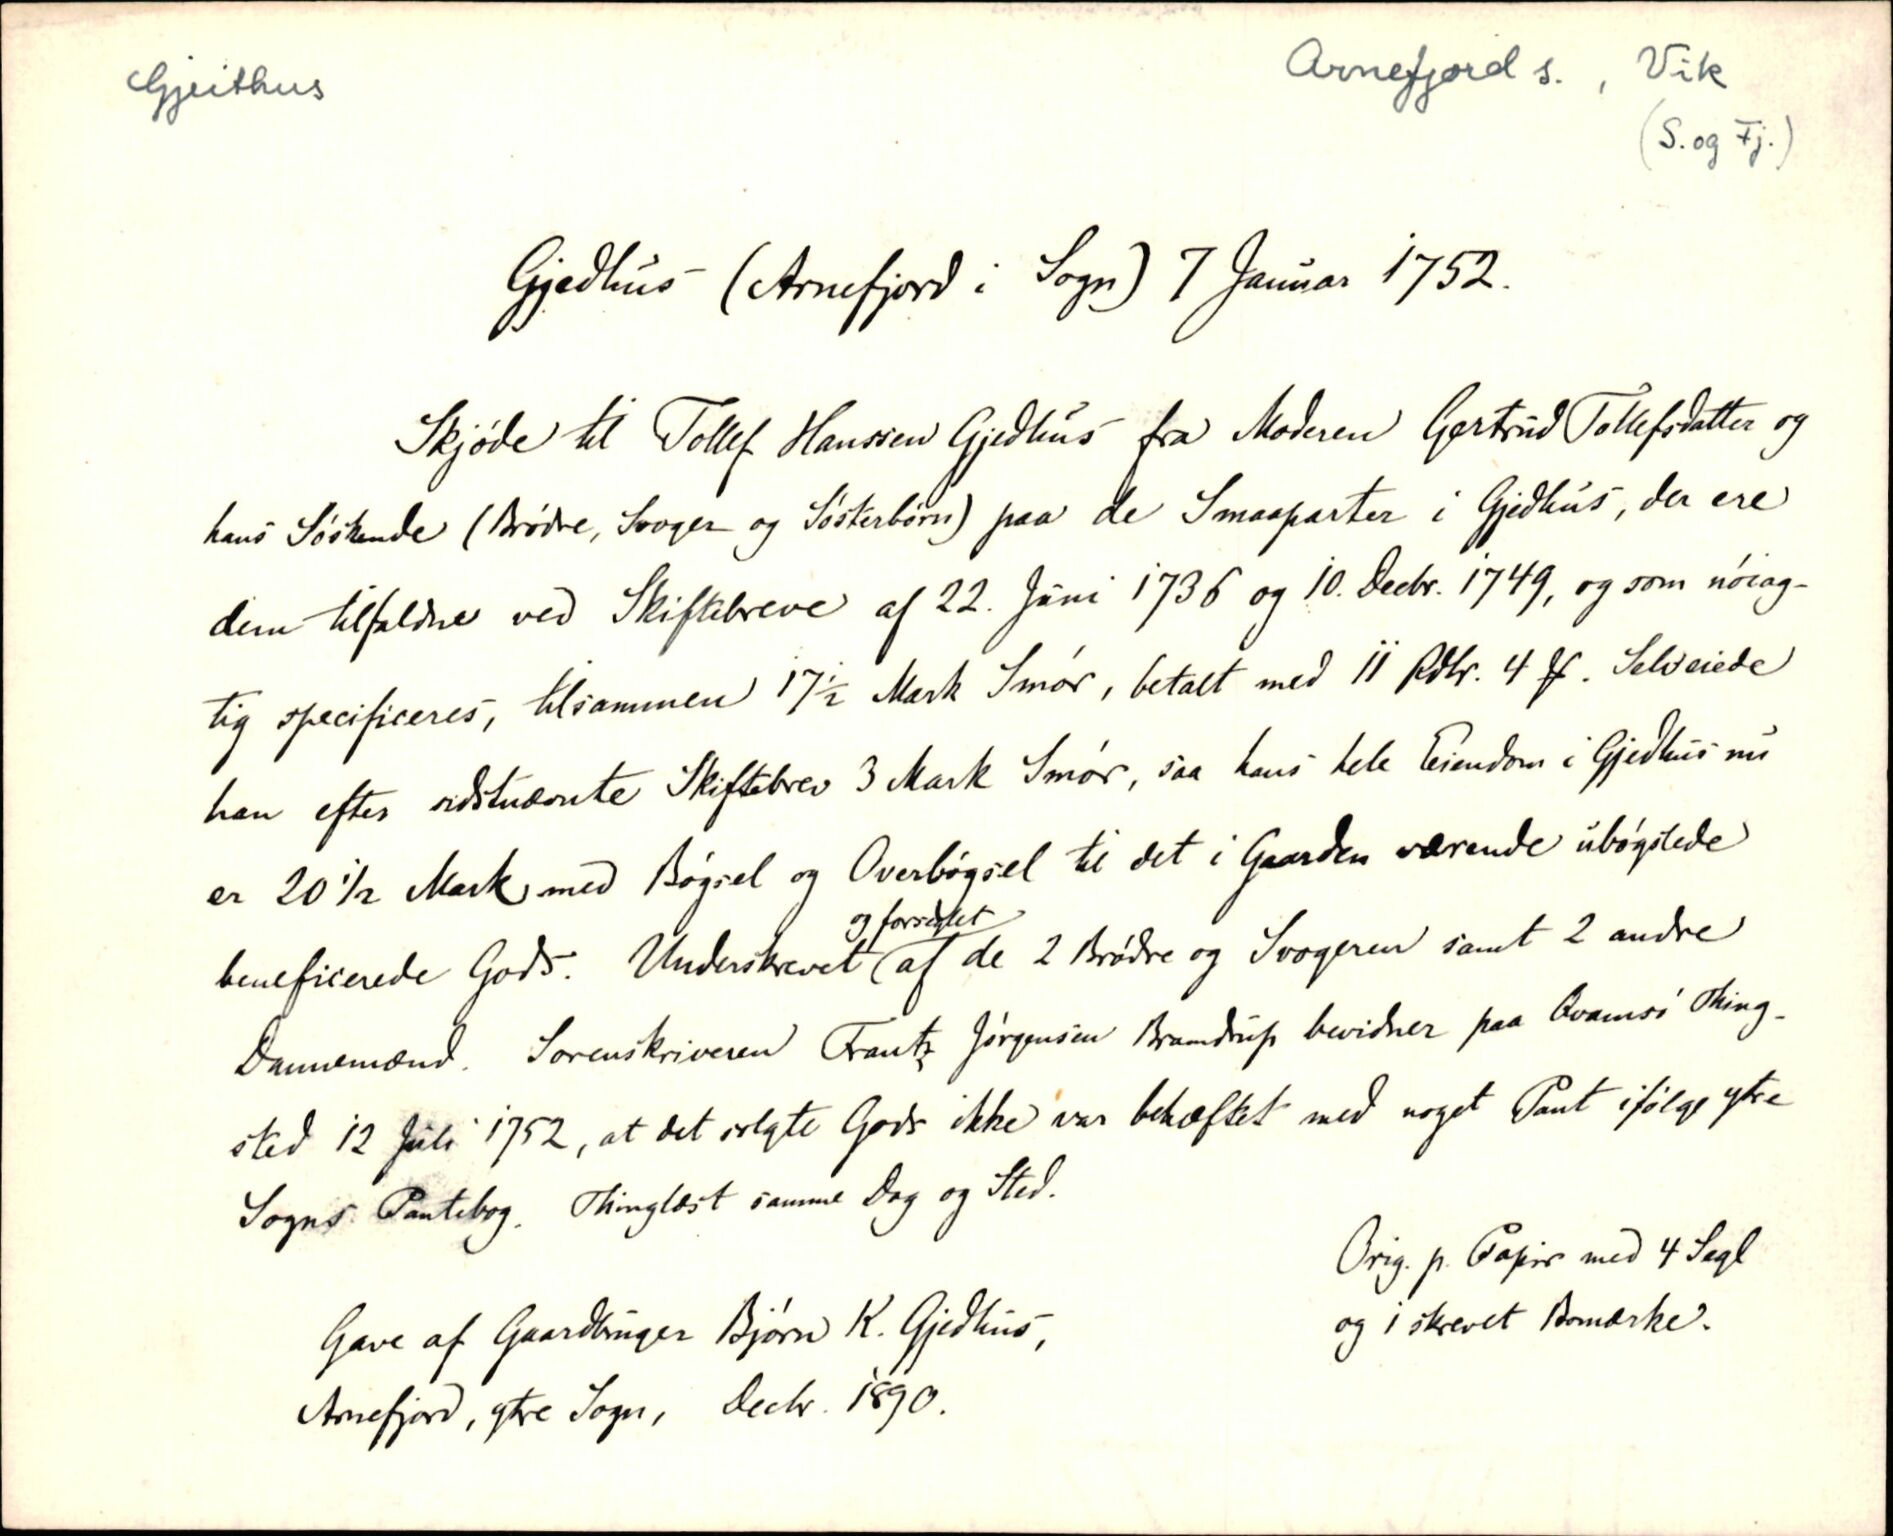 Gjeithus
Arnefjord s., Vik
(S. og Fj.)
Gjedhus (Arnefjord i Sogn) 7 Januar 1752.
Skjöde til Tollef Hanssen Gjedhus fra Moderen Gertrud Tollefsdatter og
hans Söskende (Brödre, Svoger og Sösterbörn) paa de Smaaparter i Gjedhus, der ere
dem tilfaldne ved Skiftebreve af 22. Juni 1736 og 10. Decbr. 1749, og som nöiag-
tig specificeres, tilsammen 17½ Mark Smör, betalt med 11 Rdlr. 4 ꟗ. Selveiede
han efter sidstnævnte Skiftebrev 3 Mark Smör, saa hans hele Eiendom i Gjedhus nu
er 20 1/2 Mark med Bögsel og Overbögsel til det i Gaarden værende ubögslede
beneficerede Gods. Underskrevet og forseglet af de 2 Brödre og Svogeren samt 2 andre
Dannemænd. Sorenskriveren Frantz Jörgensen Bramdrup bevidner paa Qvamsö Thing-
sted 12 Juli 1752, at det solgte Gods ikke var behæftet med noget Pant ifölge ytre
Sogns Pantebog. Thinglæst samme Dag og Sted.
Orig. p. Papir med 4 Segl
og 1 skrevet Bomærke.
Gave af Gaardbruger Björn K. Gjedhus,
Arnefjord, ytre Sogn, Decbr. 1890.